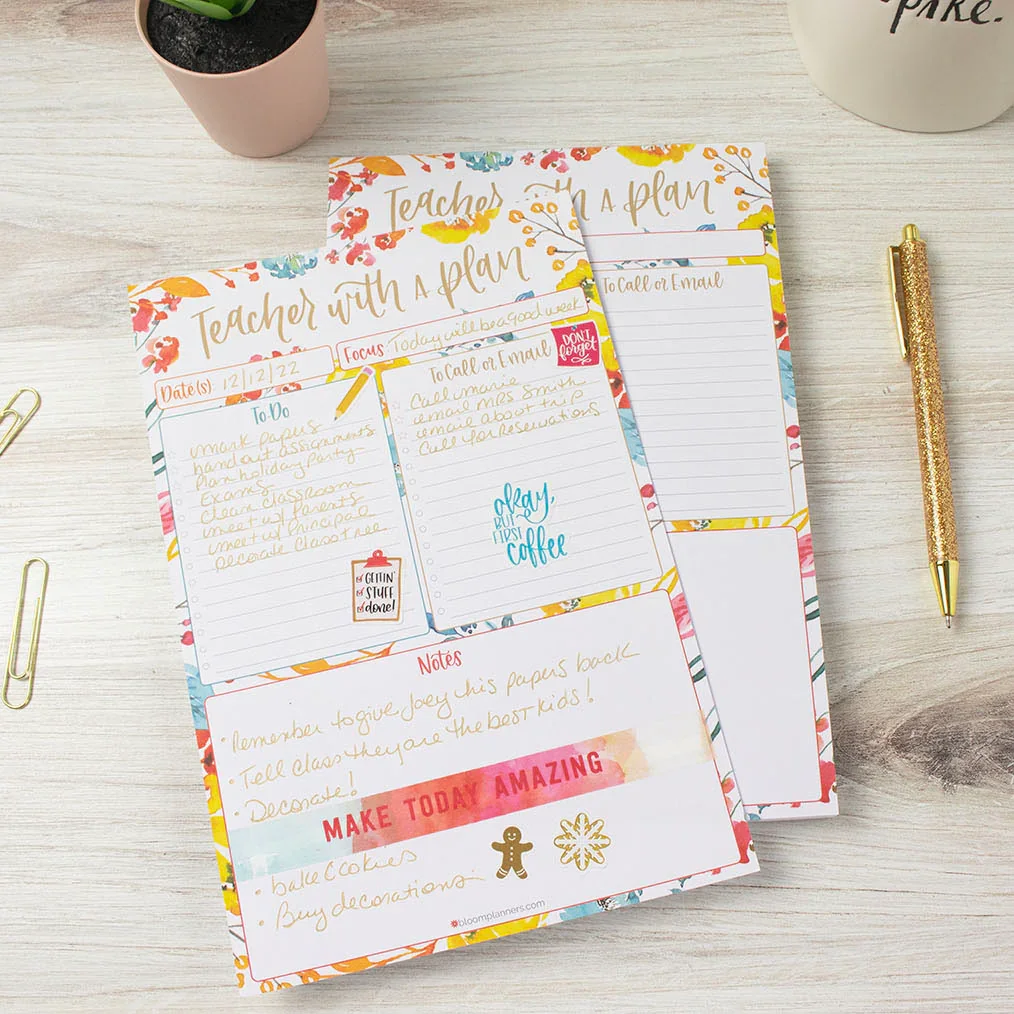 pire.
Teacher with a plan
To Call or Email
Teacher with a plan
Date(s): 12/12/22
Focus: Today will be a good week
To-Do
mark papers
handout assignments
Plan holiday Party
Exams
clean classroom
meet w/ Parents
meet w/ Principal
decorate Class tree
GETTIN'
STUFF
done!
To Call or Email
DON'T
forget
Call marie
email MRS Smith
email about trip
Call for Reservations
okay,
BUT
FIRST
coffee
Notes
• Remember to give Joey his papers back
• Tell class they are the best kids!
• Decorate!
MAKE TODAY AMAZING
• bake Cookies
• Buy decorations
bloomplanners.com